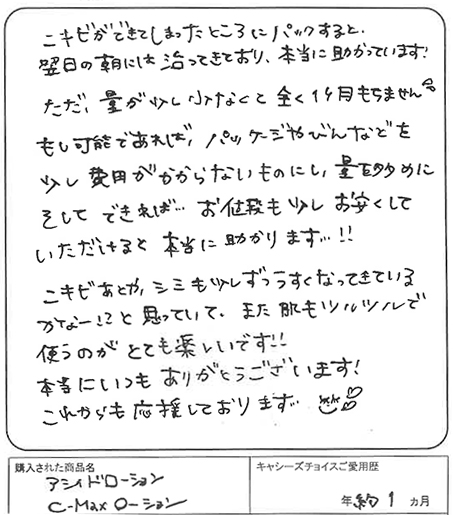 ニキビができてしまったところにパックすると、
翌日の朝には治ってきており、本当に助かっています!
ただ、量が少し少なくと全く1ヶ月もちません
もし可能であれば、パッケージやびんなどを
少し費用がかからないものにし、量を多めに
そして できれば… お値段も少し お安くして
いただけると 本当に助かります…!!
ニキビあとや、シミも少しずつうすくなってきている
かなー!?と思っていて、また肌もツルツルで
使うのが とても楽しいです!!
本当にいつも ありがとうございます!
これからも応援しております…
購入された商品名
アシィドローション
C-Maxローション
キャシーズチョイスご愛用歴
年 約1 カ月